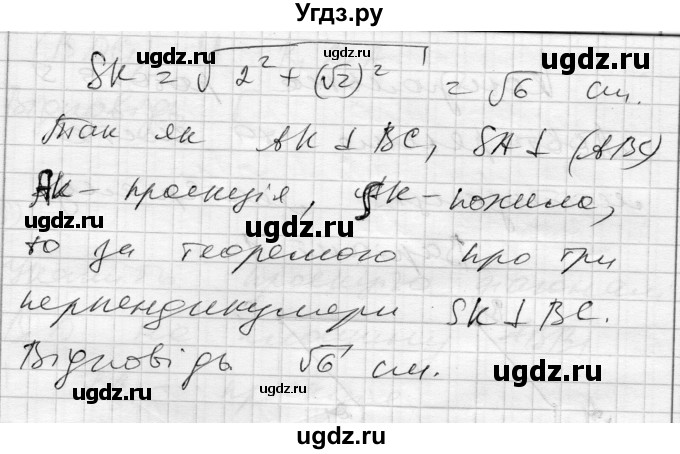 Угдз.ру
SK = √(2² + (√2)²) = √6 см.
Так як AK ⊥ BC, SA ⊥ (ABC)
AK - проекція, SK - похила,
то за теоремою про три
перпендикуляри SK ⊥ BC.
Відповідь √6 см.
ugdz.ru
ugdz.ru
ugdz.ru
ugdz.ru
ugdz.ru
ugdz.ru
ugdz.ru
ugdz.ru
ugdz.ru
ugdz.ru
ugdz.ru
ugdz.ru